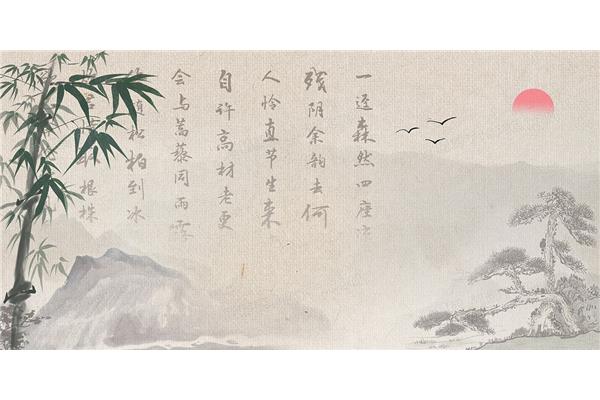 一迳森然四座
残阴余韵去何
人怜直节生来
自许高材老更
会与蒿藜同雨
随松柏到冰
根株